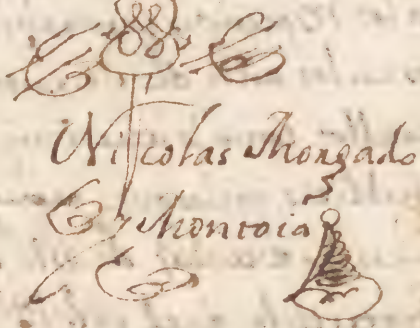 Nicolas Mongado
y Montoia